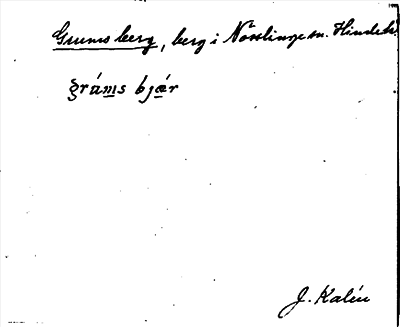 Grums berg, berg i Nösslinge sn. Himleh.
gráms bjær
J. Kalén